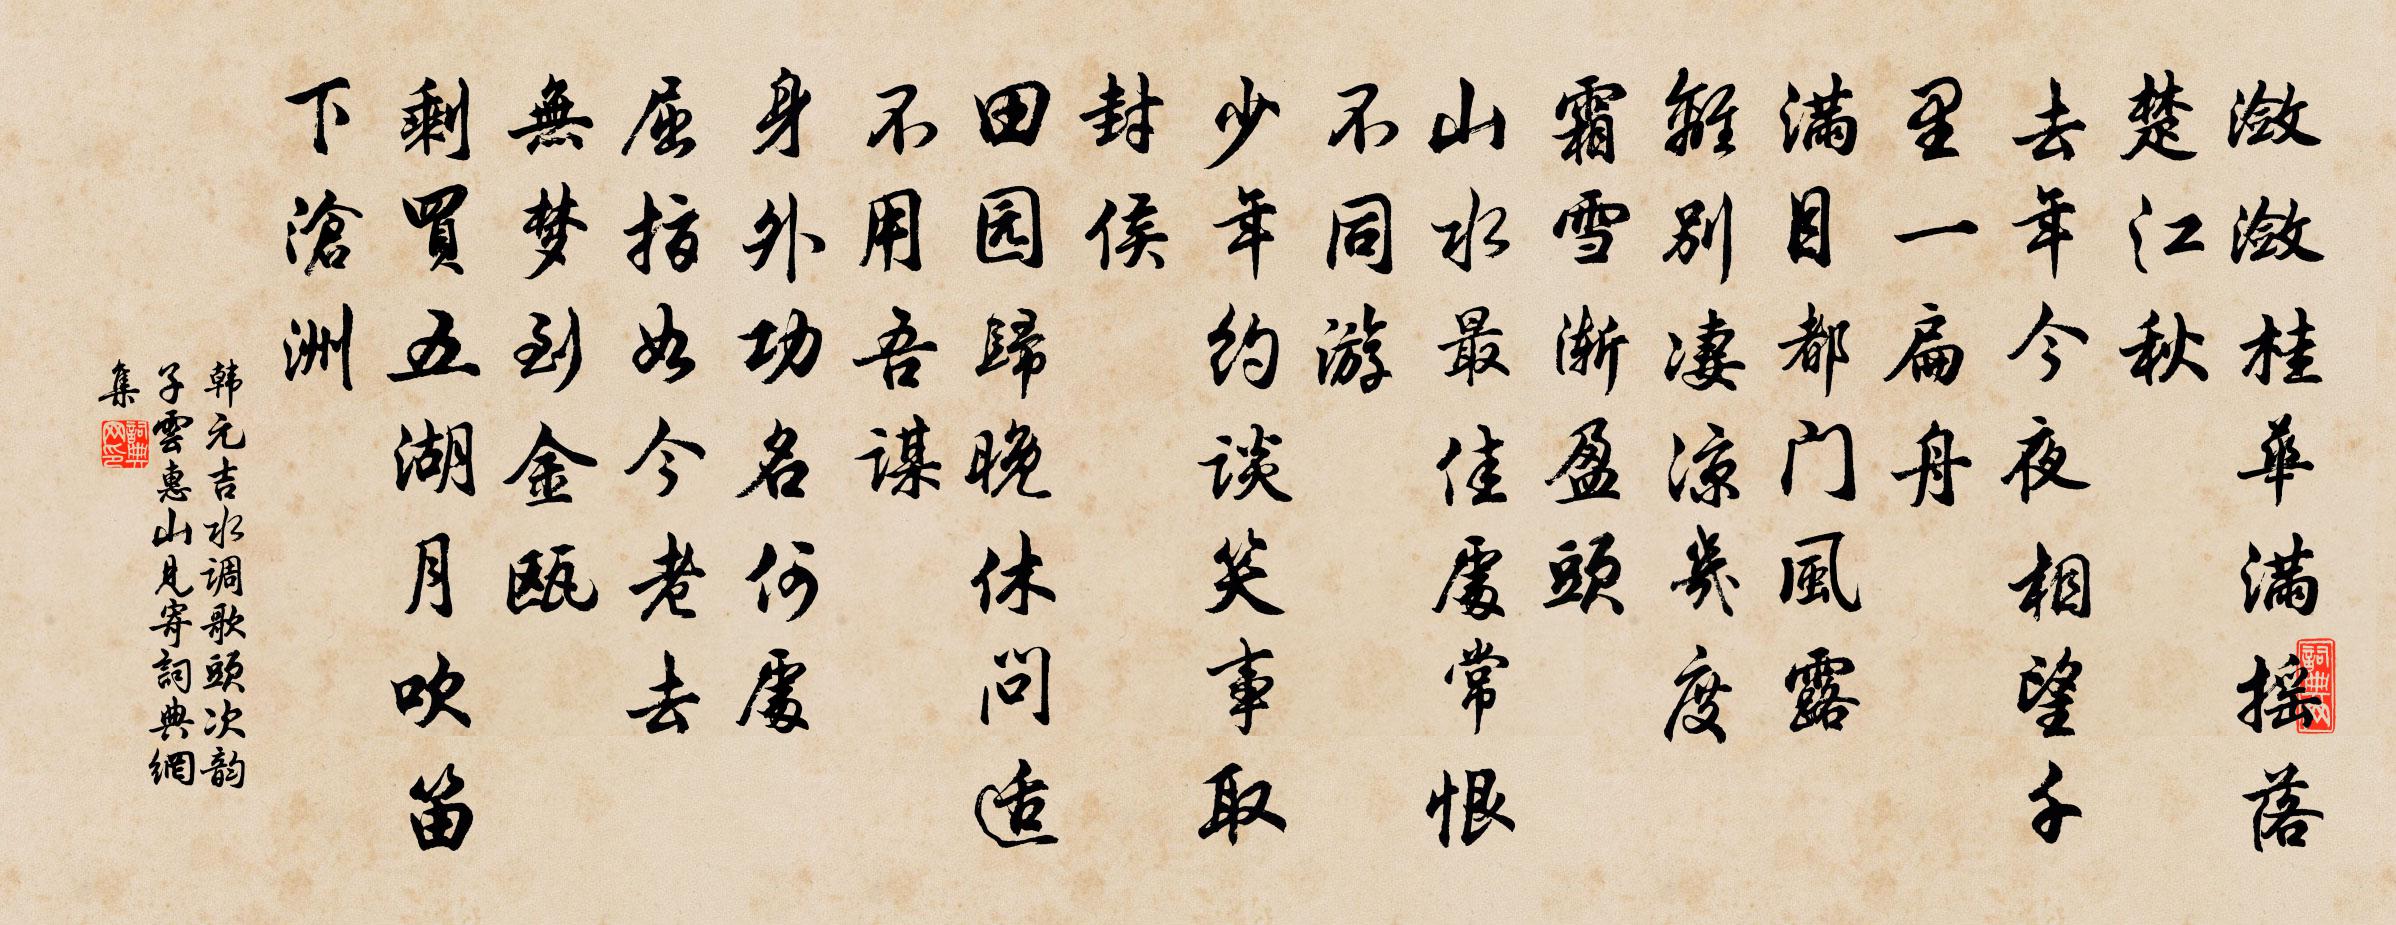 潋潋桂華满摇落
楚江秋
去年今夜相望千
里一扁舟
满目都门風露
離别凄凉幾度
霜雪渐盈頭
山水最佳處常恨
不同游
少年约谈笑事取
封侯
田园歸晚休问适
不用吾谋
身外功名何處
屈指如今老去
無梦到金瓯
剩買五湖月吹笛
下滄洲
韩元吉水调歌頭次韵
子雲惠山見寄詞典網
集
詞典网
詞典网印